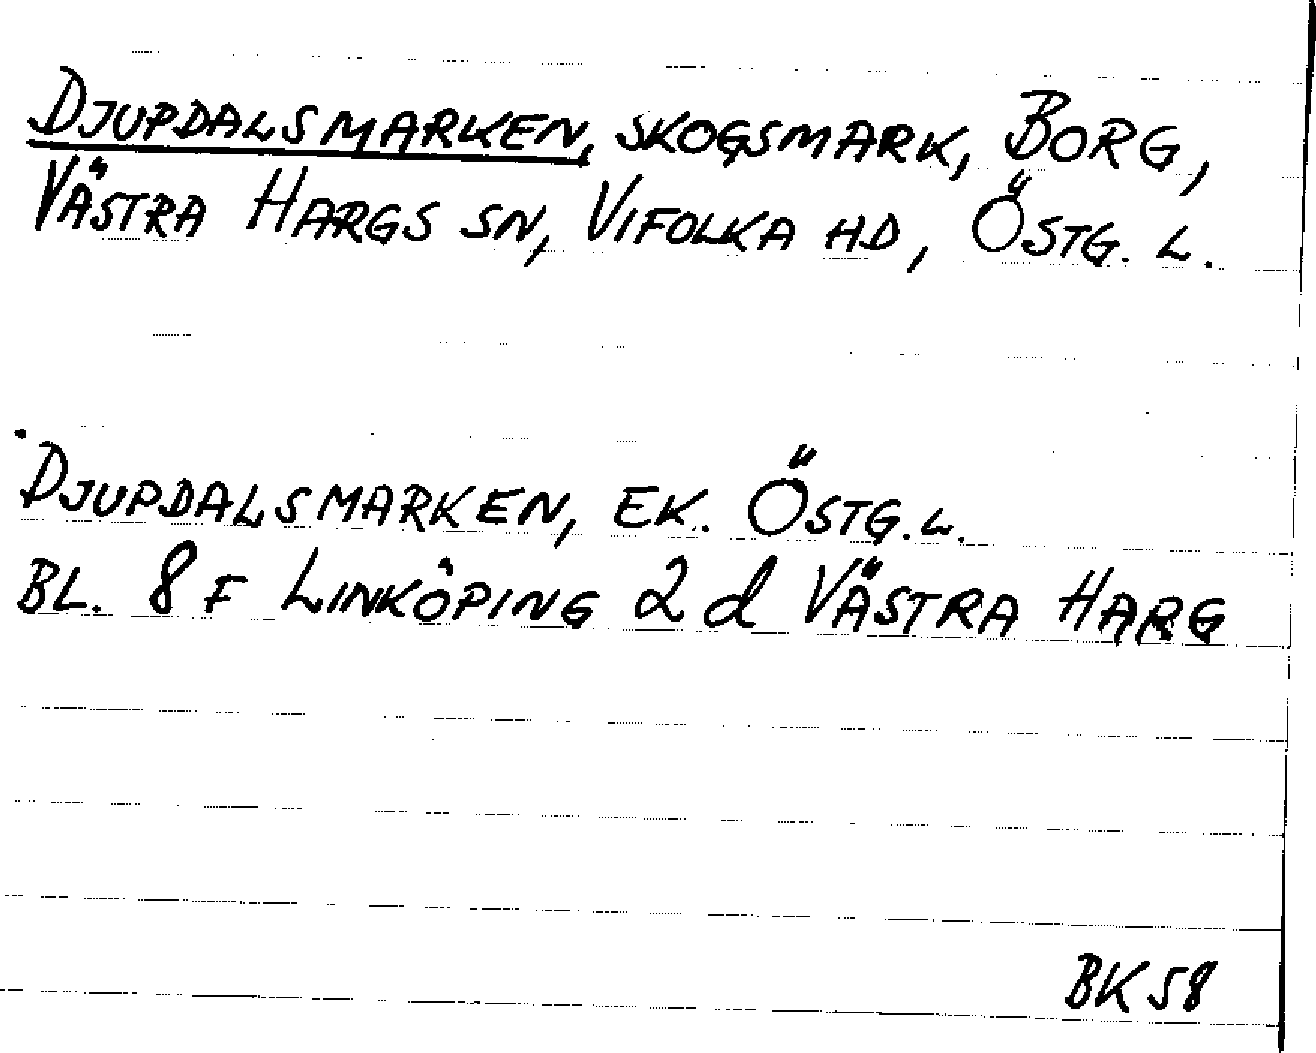 DJUPDALSMARKEN, SKOGSMARK, BORG,
VÄSTRA HARGS SN, VIFOLKA HD, ÖSTG. L.
DJUPDALSMARKEN, EK. ÖSTG. L.
BL. 8 F LINKÖPING 2 d VÄSTRA HARG
BK 58